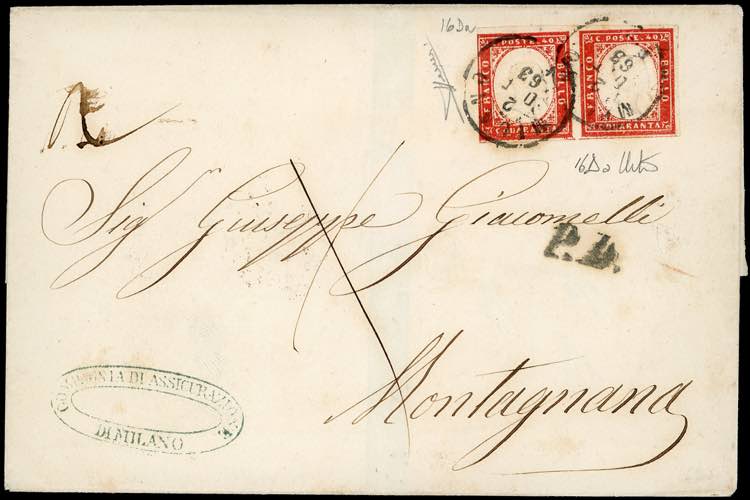 16Da
C. POSTE. 40 C. POSTE. 40
FRANCO BOLLO FRANCO BOLLO
C. QUARANTA C. QUARANTA
MILANO
63
16Da
Sig Giuseppe Giacomelli
P.D.
Montagnana
COMPAGNIA DI ASSICURAZIONE
DI MILANO